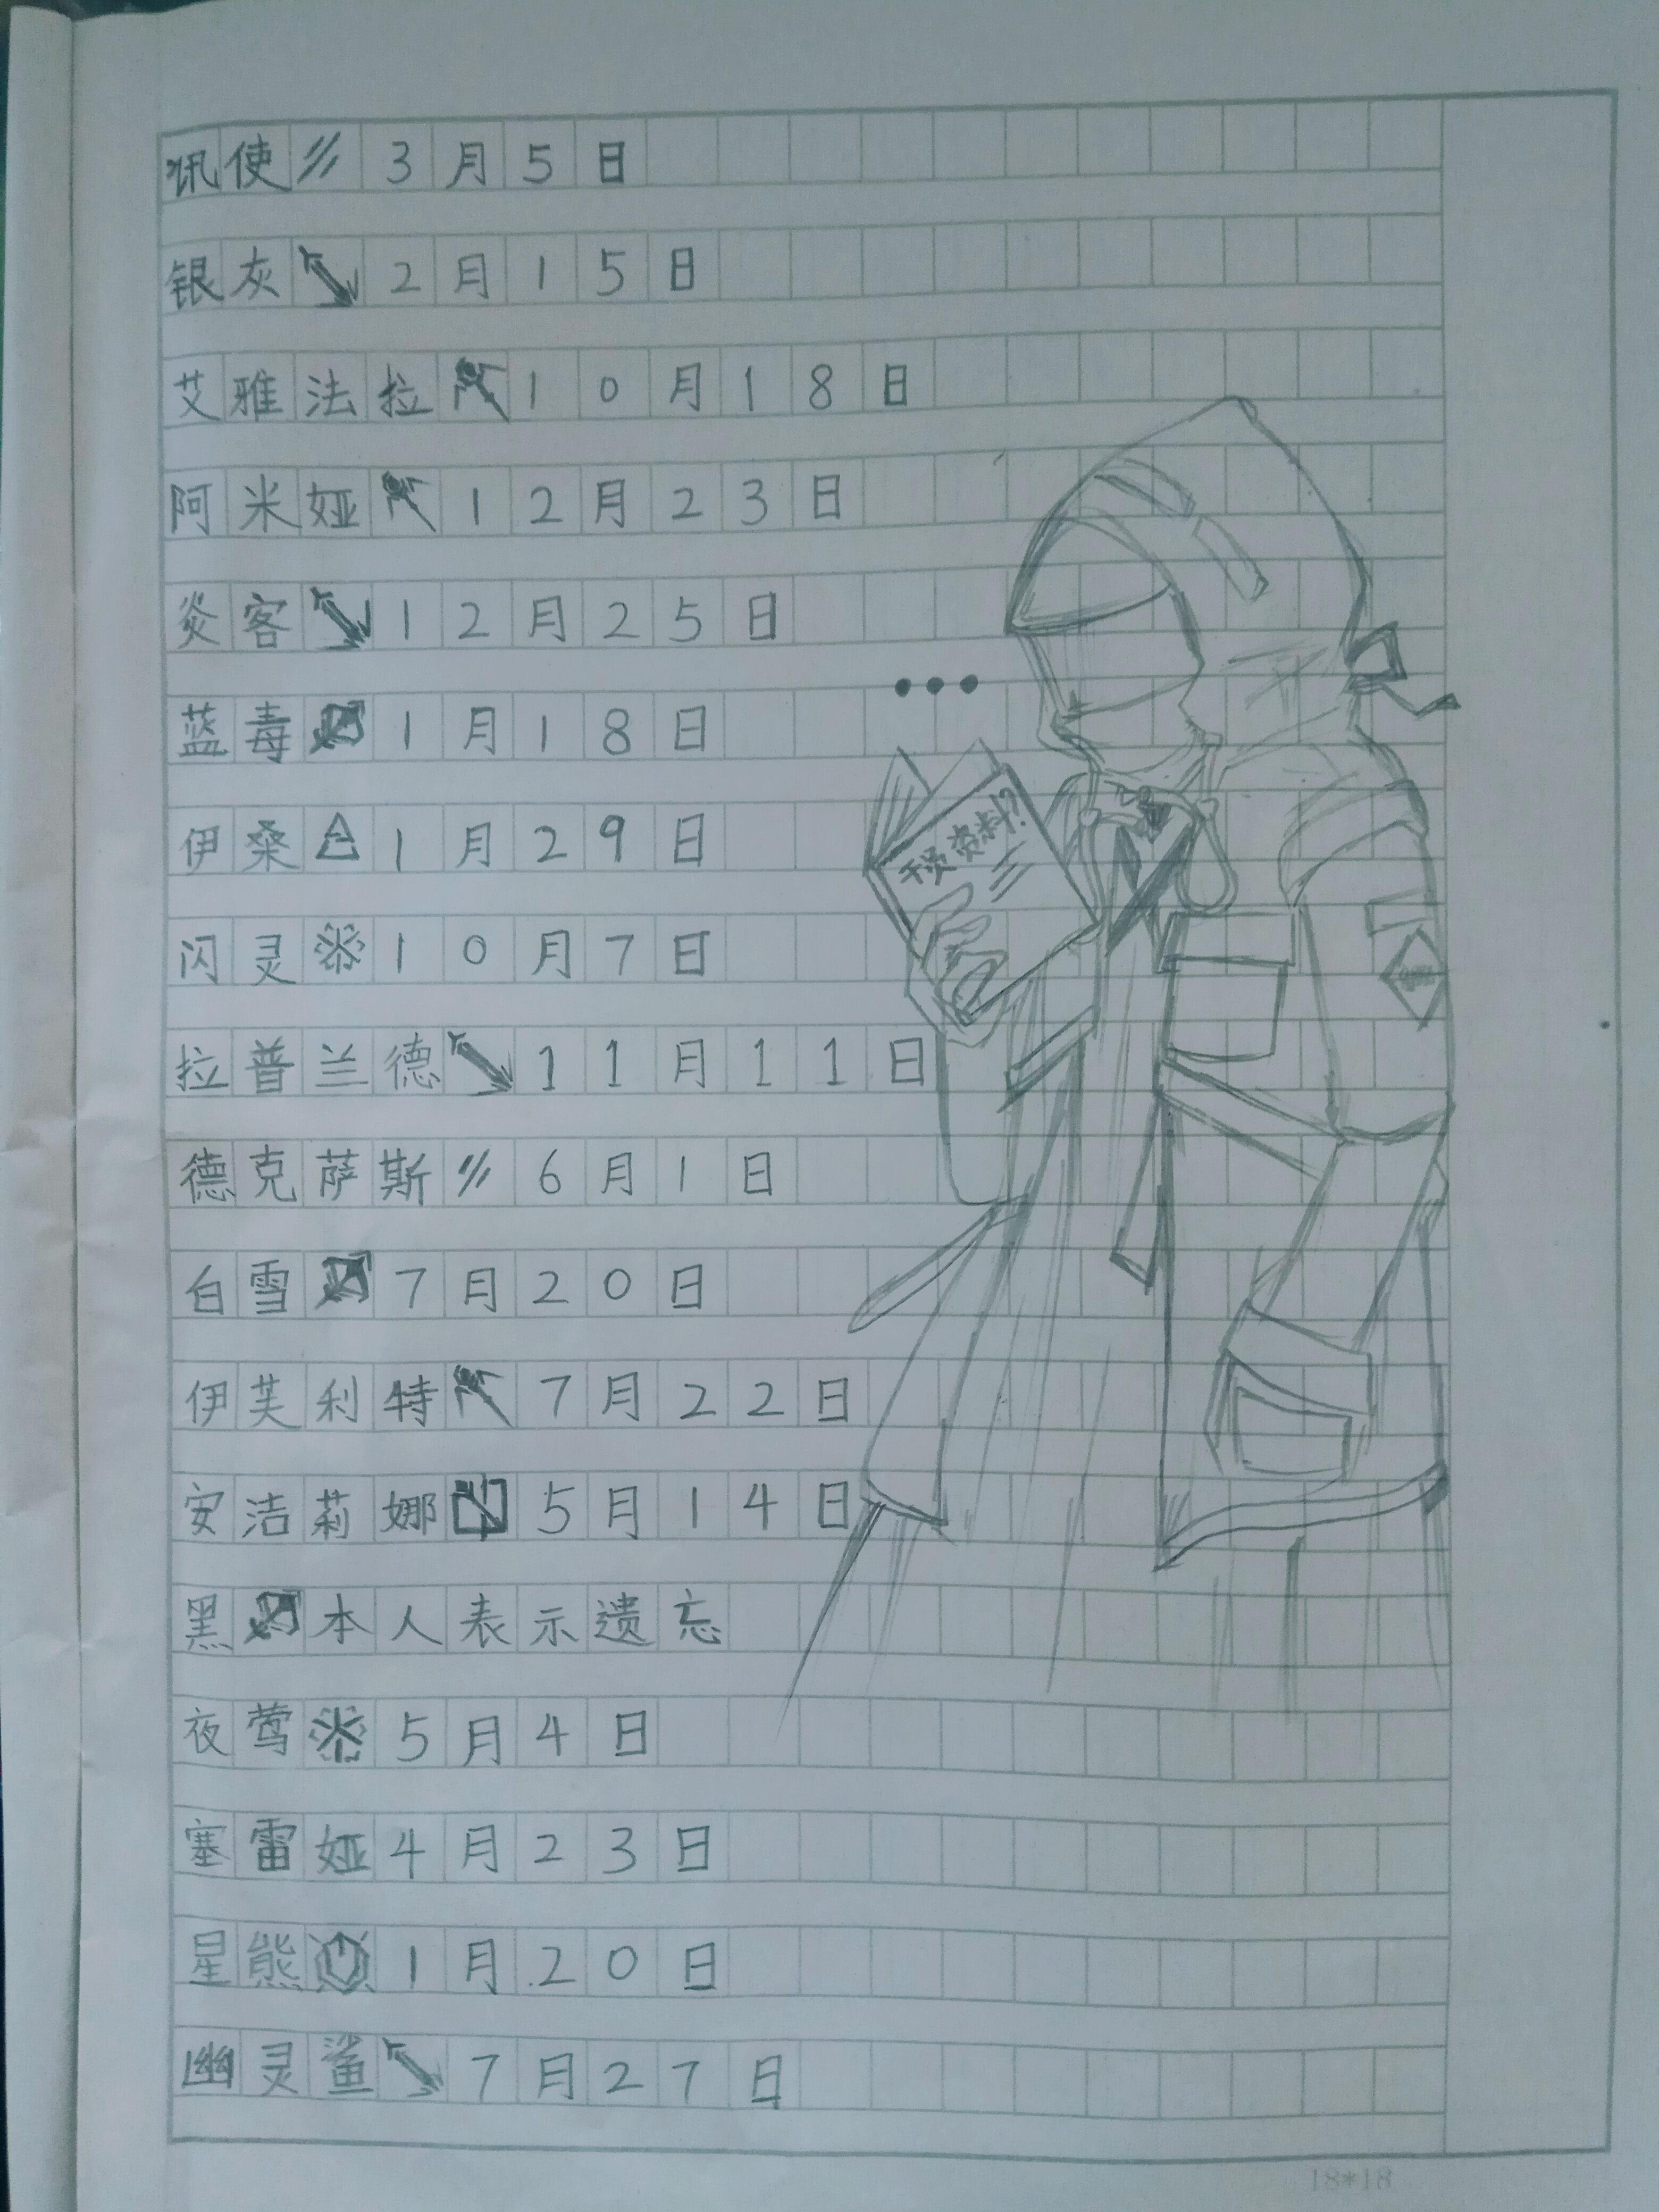 讯使 3月5日
银灰 2月15日
艾雅法拉 10月18日
阿米娅 12月23日
炎客 12月25日
蓝毒 1月18日
伊桑 1月29日
干员资料?
闪灵 10月7日
拉普兰德 11月11日
德克萨斯 6月1日
白雪 7月20日
伊芙利特 7月22日
安洁莉娜 5月14日
黑 本人表示遗忘
夜莺 5月4日
塞雷娅4月23日
星熊 1月20日
幽灵鲨 7月27日
18*18